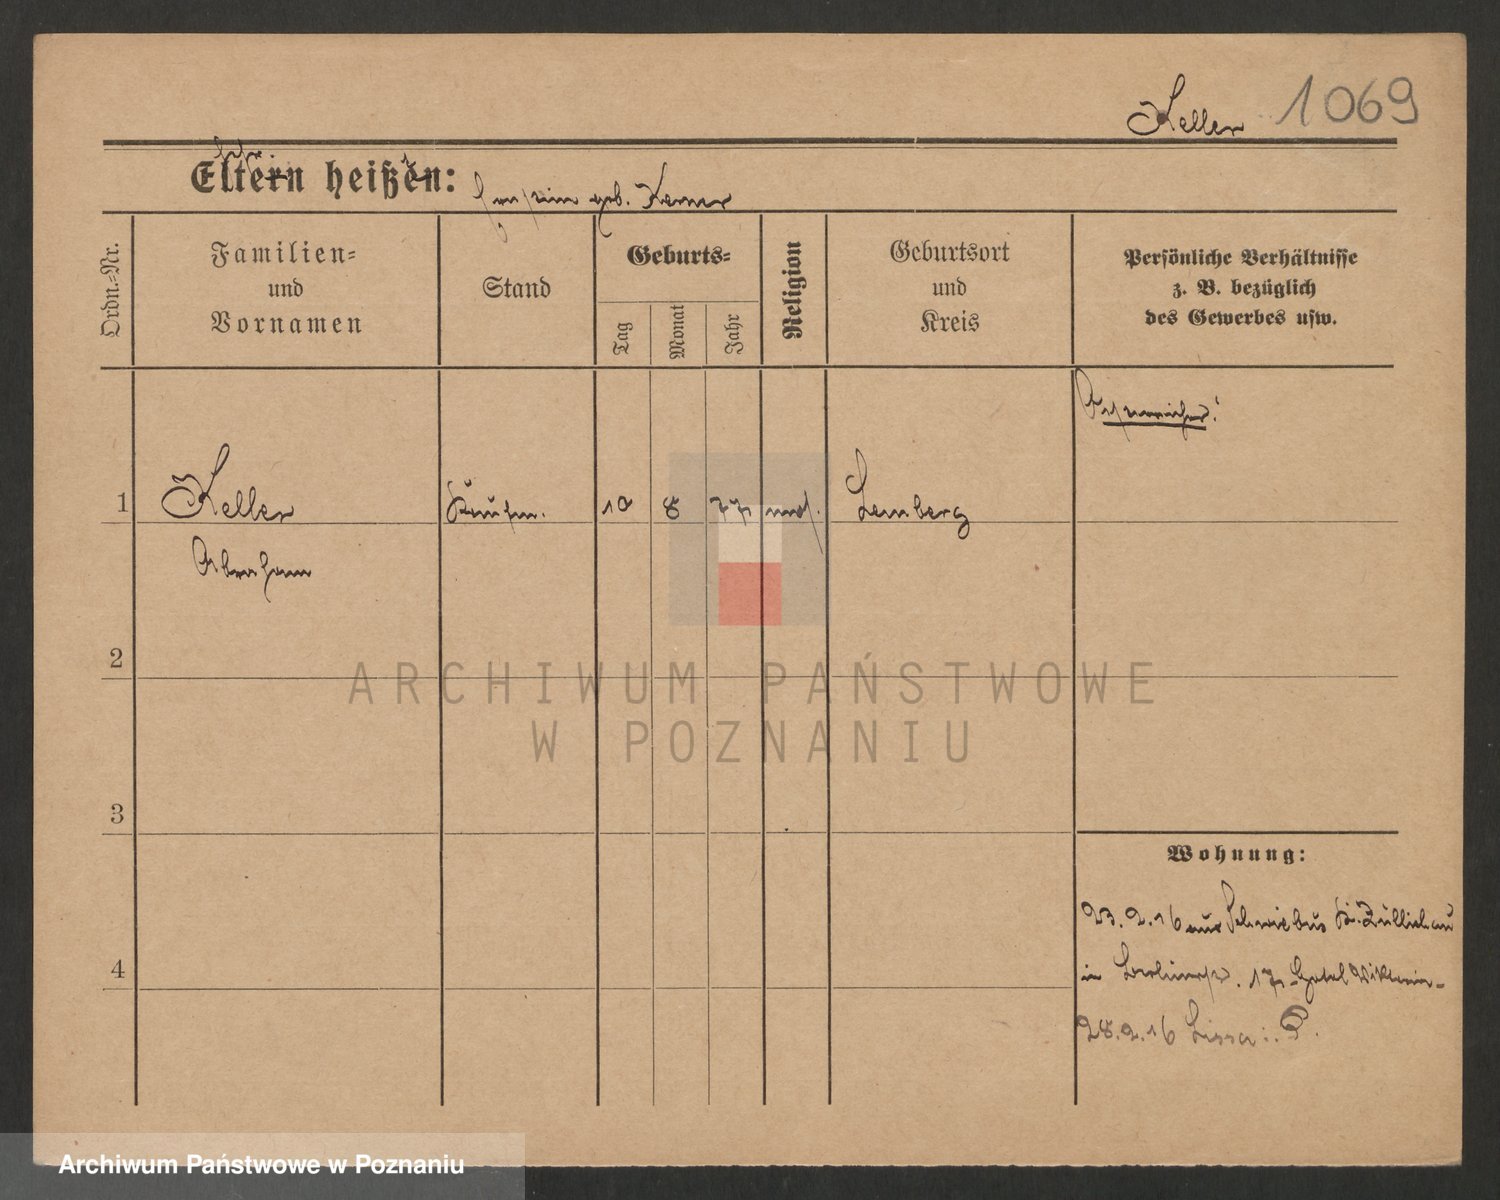 Keller 1069
Eltern heißen:
geb. Kerner
Ordn.=Nr.
Familien=
und
Vornamen
Stand
Geburts=
Tag
Monat
Jahr
Religion
Geburtsort
und
Kreis
Persönliche Verhältnisse
z. B. bezüglich
des Gewerbes usw.
1 Keller Kaufm. 10 8 77 mos. Lemberg
Abraham
2
3
4
Wohnung:
23.2.16 aus Schwiebus Kr. Züllichau
in Berlinerstr. 17 Hotel Viktoria
28.2.16 Lissa i. P.
ARCHIWUM PAŃSTWOWE
W POZNANIU
Archiwum Państwowe w Poznaniu